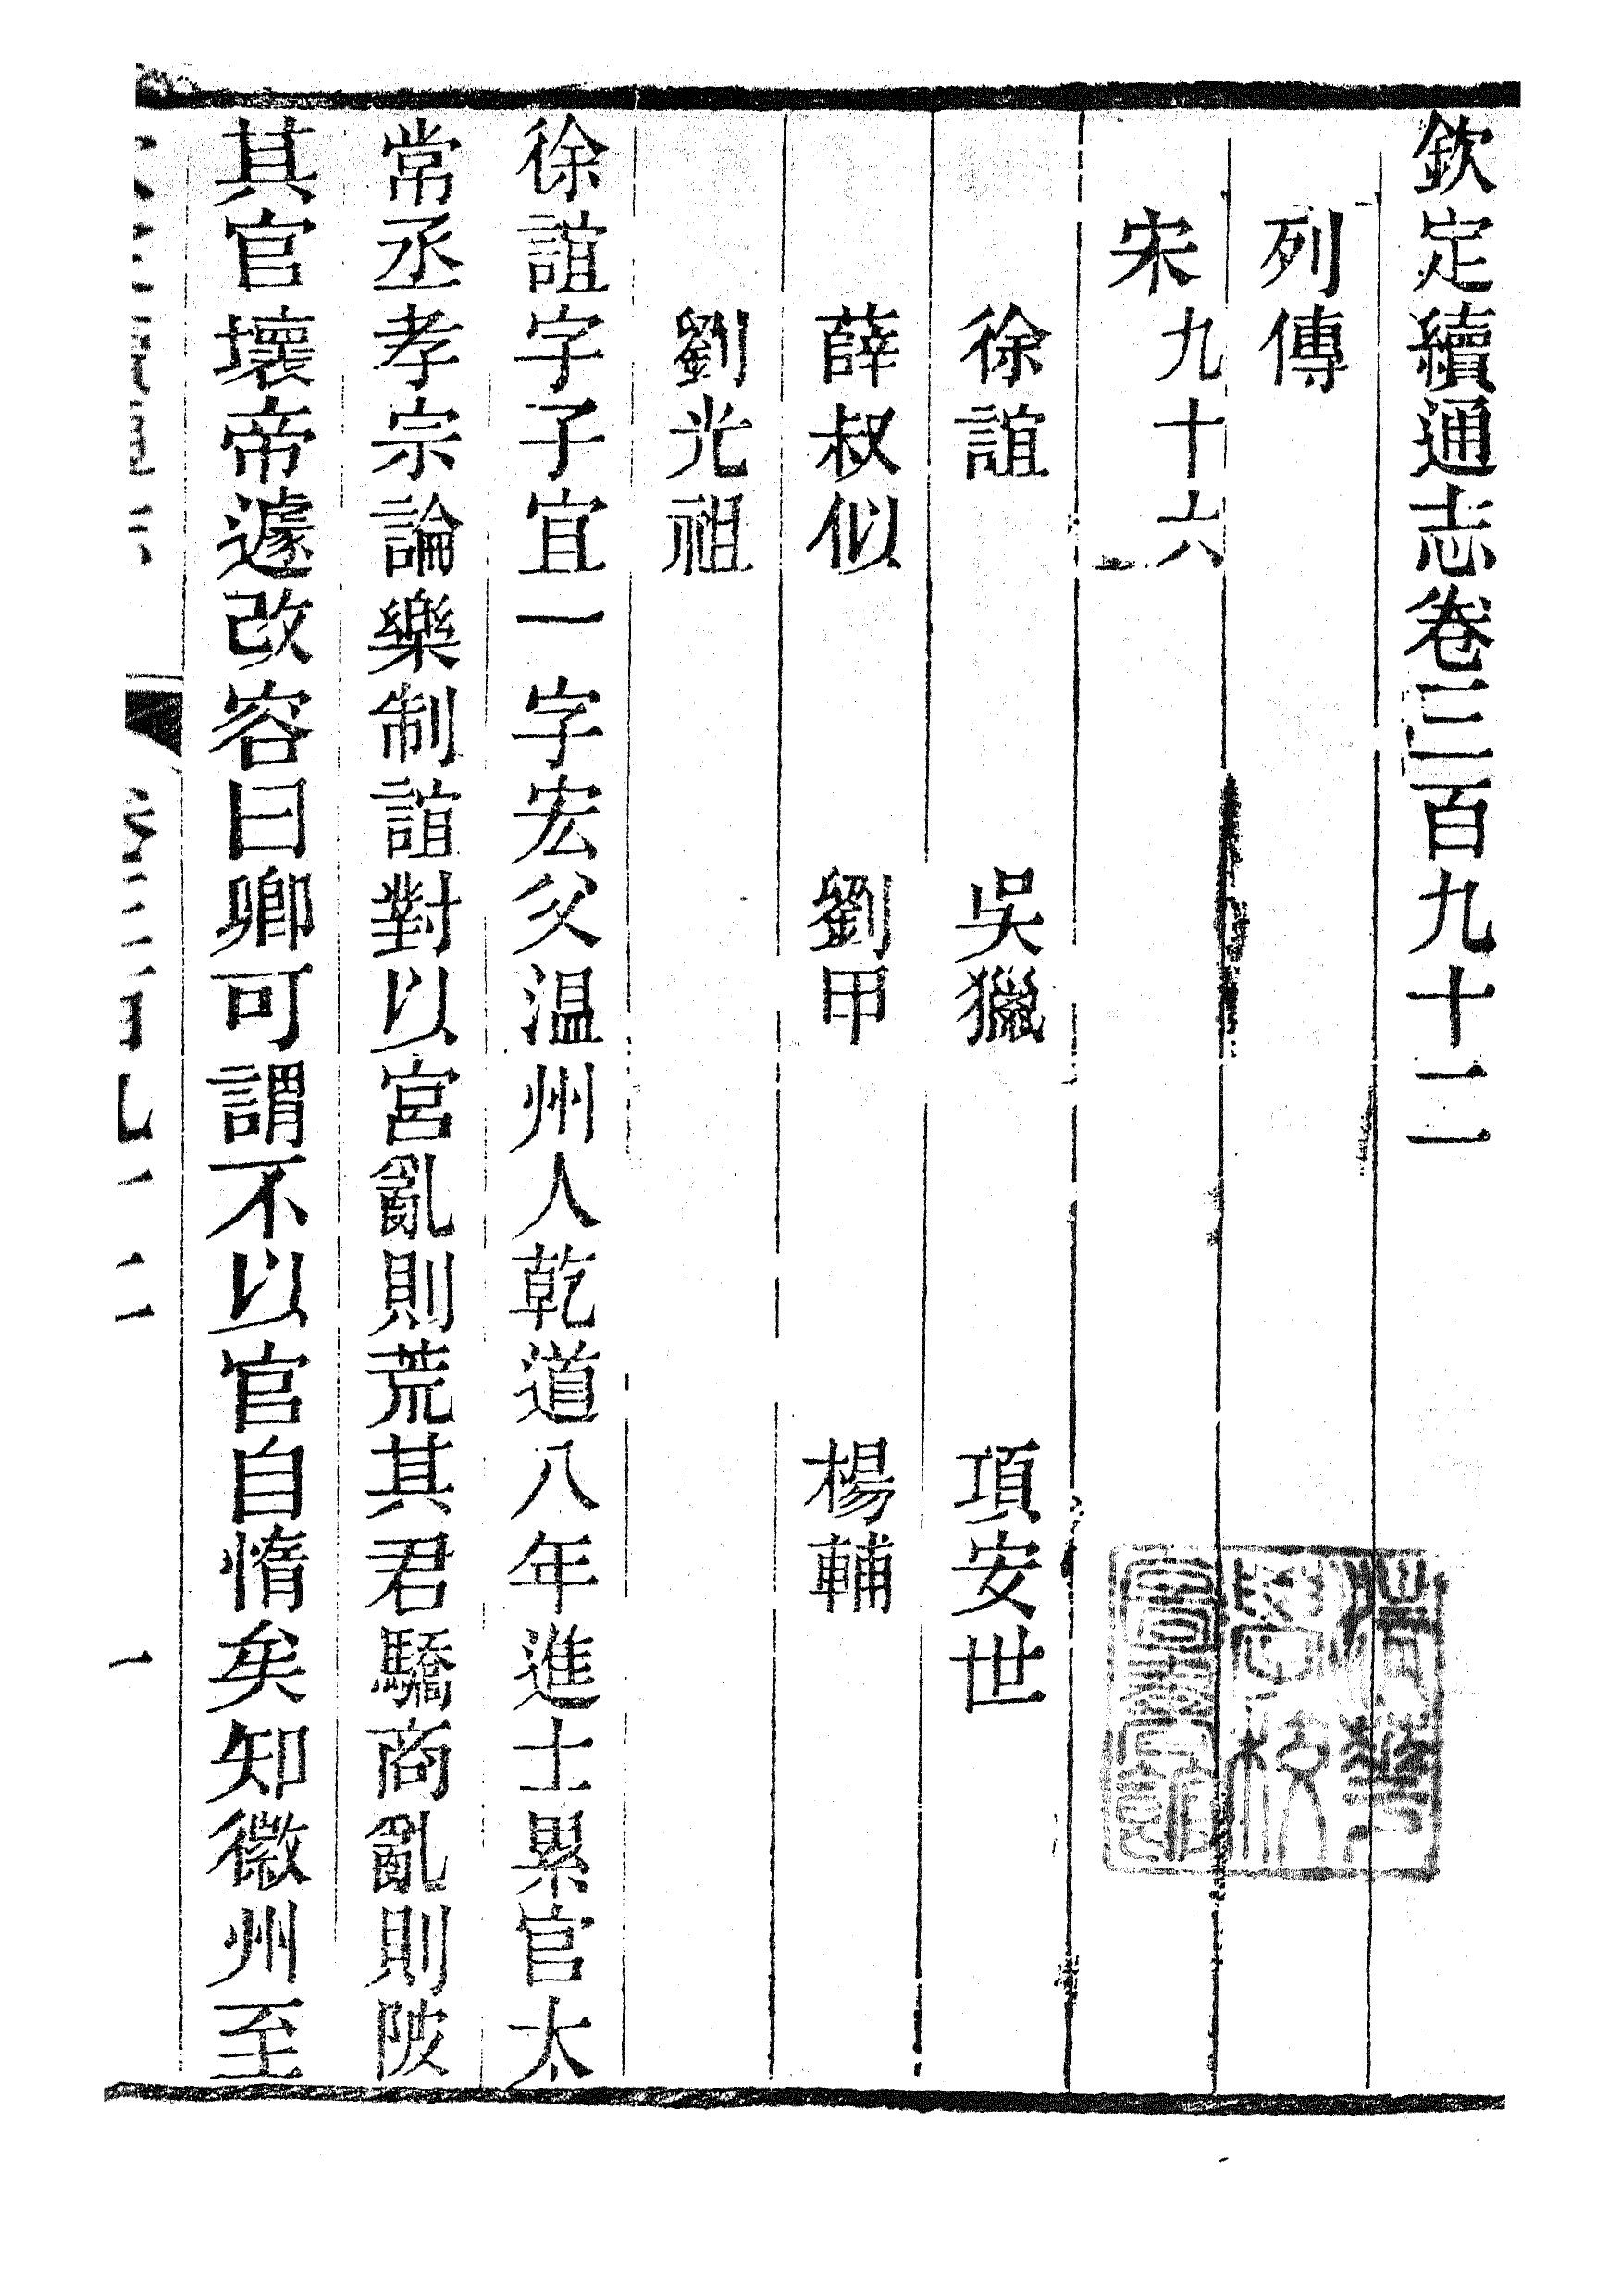 欽定續通志卷三百九十二
列傳
宋九十六
徐誼 吳獵 項安世
薛叔似 劉甲 楊輔
劉光祖
徐誼字子宜一字宏父温州人乾道八年進士累官太
常丞孝宗論樂制誼對以宮亂則荒其君驕商亂則陂
其官壞帝遽改容曰卿可謂不以官自惰矣知徽州至